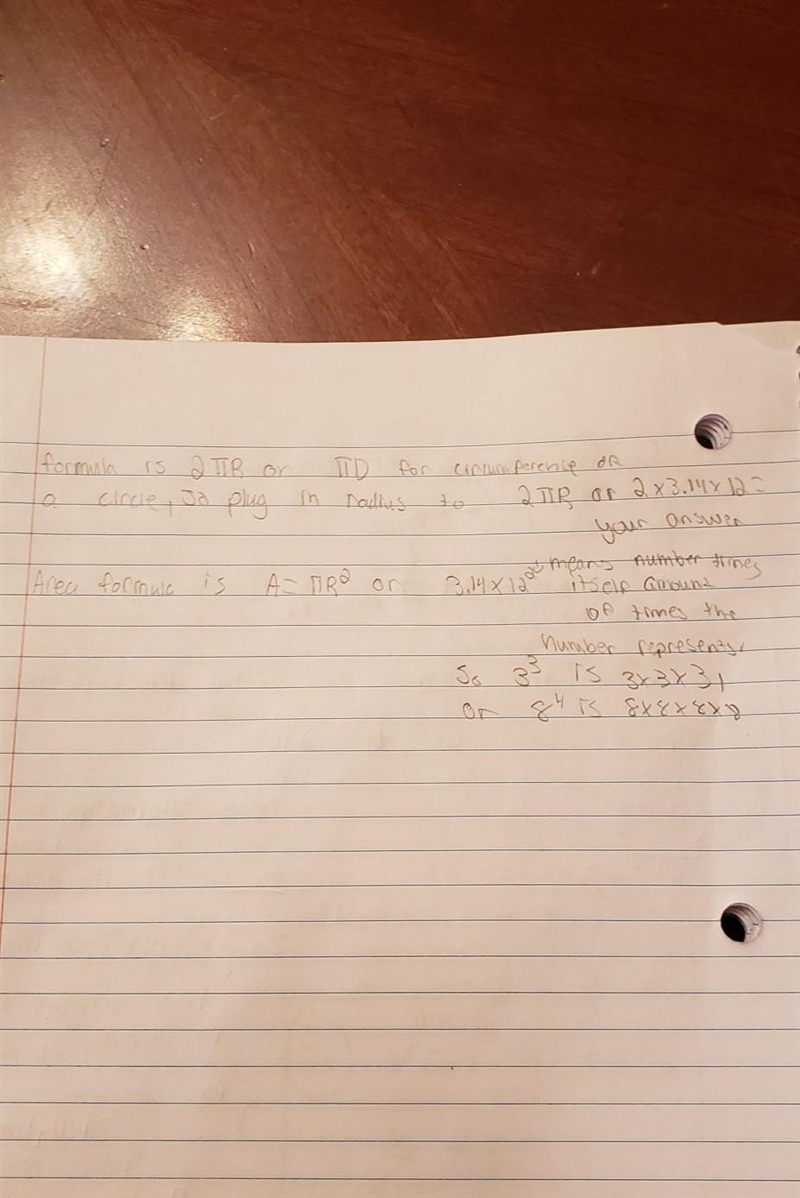 formula is 2πR or πD for circumference of
a circle, so plug in radius to 2πR or 2x3.14x12=
your answer
Area formula is A=πR² or 3.14x12² means number times
itself amount
of times the
number represents.
So 3³ is 3x3x3,
or 8⁴ is 8x8x8x8